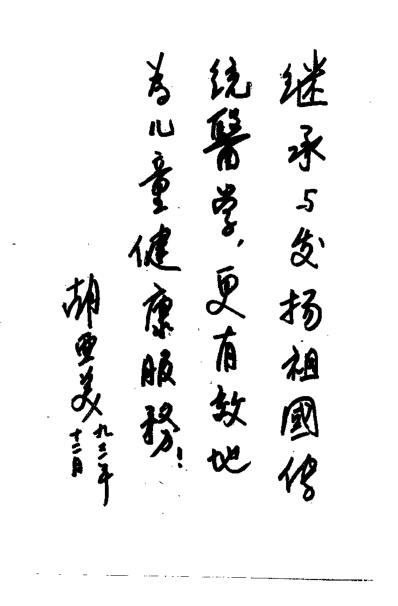 继承与发扬祖國传
统醫学，更有效地
为儿童健康服務！
胡亚美
九三年
十二月